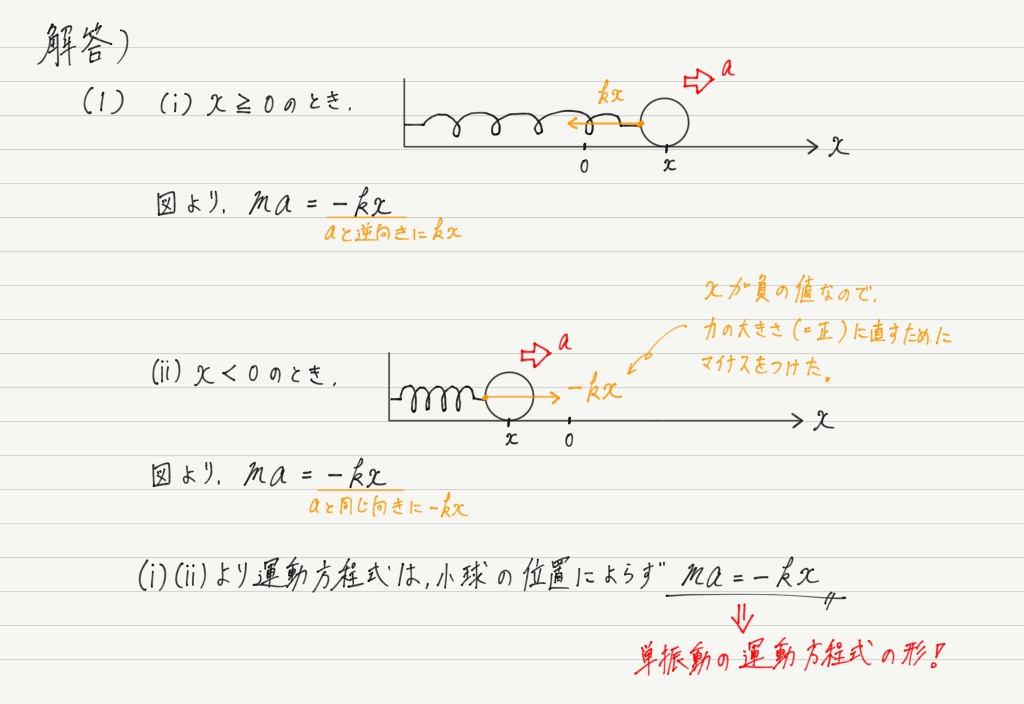 解答)
(1) (i) x ≧ 0 のとき.
a
kx
0
x
x
図より. ma = -kx
aと逆向きにkx
xが負の値なので.
力の大きさ(=正)に直すために
マイナスをつけた。
(ii) x < 0 のとき.
a
-kx
x
0
x
図より. ma = -kx
aと同じ向きに-kx
(i)(ii)より運動方程式は,小球の位置によらず ma = -kx
⇓
単振動の運動方程式の形!